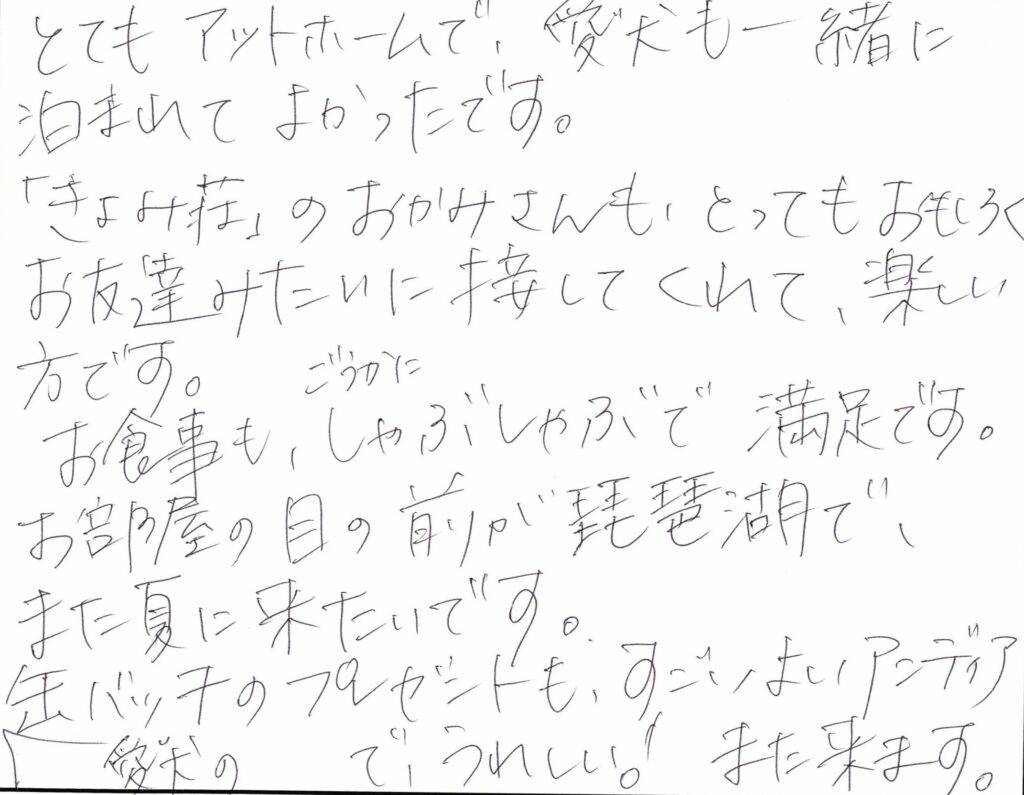 とてもアットホームで、愛犬も一緒に
泊まれてよかったです。
「きよみ荘」のおかみさんも、とってもおもしろく
お友達みたいに接してくれて、楽しい
方です。
ごうかに
お食事も、しゃぶしゃぶで満足です。
お部屋の目の前が琵琶湖で、
また夏に来たいです。
缶バッチのプレゼントも、すごいよいアンディア
愛犬の で、うれしい! また来ます。